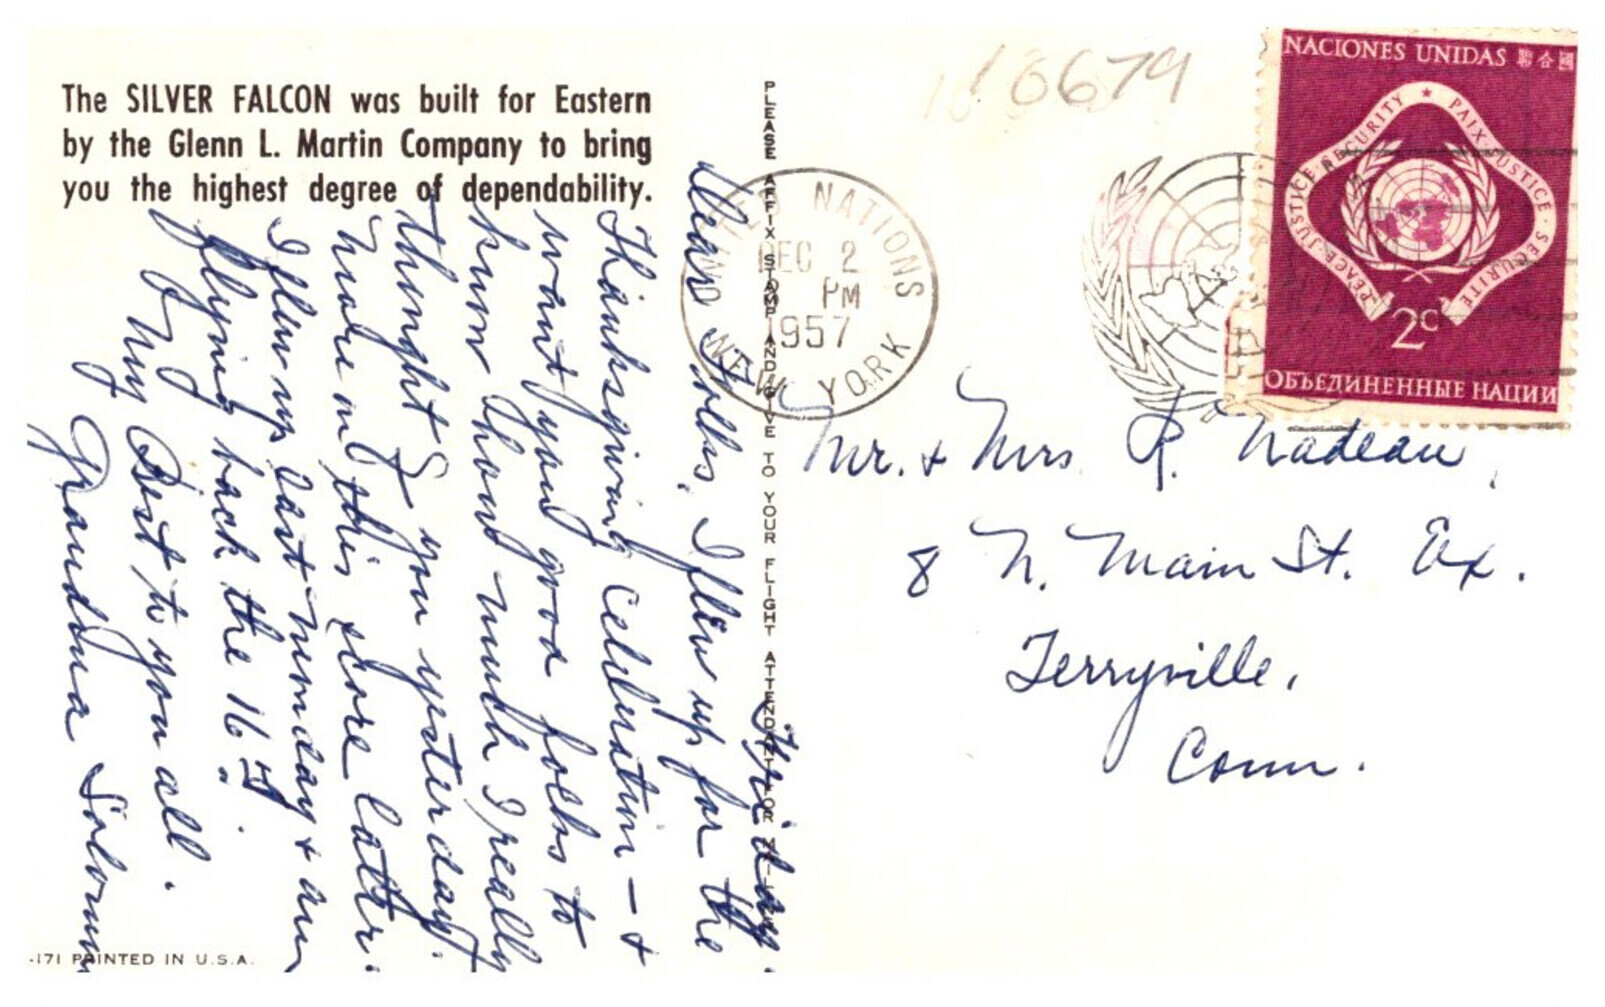 The SILVER FALCON was built for Eastern
by the Glenn L. Martin Company to bring
you the highest degree of dependability.
Friday.
Dear Folks, I flew up for the
Thanksgiving celebration - +
want you good folks to
know how much I really
thought of you yesterday.
More on this score latter.
I flew up last monday + am
flying back the 16
My Best to you all.
Grandma Solomon
-171 PRINTED IN U.S.A.
PLEASE AFFIX STAMP AND GIVE TO YOUR FLIGHT ATTENDANT OR
NATIONS
DEC 2
PM
1957
NEW YORK
16679
NACIONES UNIDAS 聯合國
PEACE · JUSTICE · SECURITY ★ PAIX · JUSTICE · SECURITE
2c
ОБЪЕДИНЕННЫЕ НАЦИИ
Mr. + Mrs R. Nadeau,
8 N. Main St. Ex.
Terryville,
Conn.